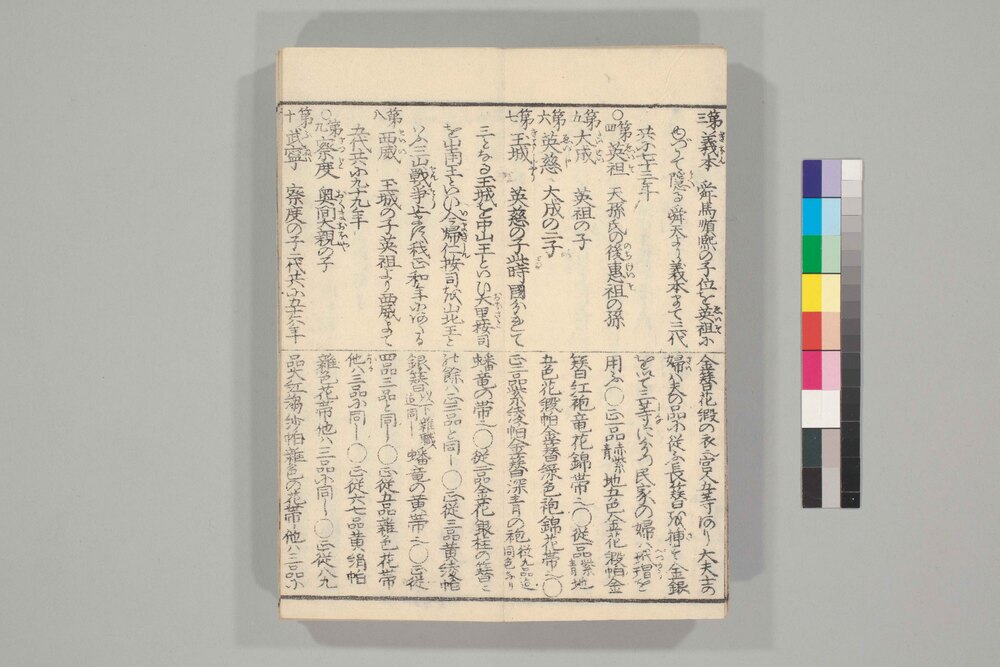 第三 義本 舜馬順熙の子位を英祖に
ゆづりて隠る舜天より義本まで三代
共に七十三年
○第四 英祖 天孫氏の後惠祖の孫
第五 大成 英祖の子
第六 英慈 大成の二子
第七 玉城 英慈の子此時國分れて
三となる玉城を中山王といい大里按司
を山南王といい今帰仁按司を山北王と
いふ三山戦争止まず我正和年にあたる
第八 西威 玉城の子英祖より西威まで
五代共に九十九年
○第九 察度 奥間大親の子
第十 武寧 察度の子二代共に五十六年
金簪花緞の衣之宮人五等あり 大夫士の
婦ハ夫の品に従ふ長簪を挿て金銀
を以て三等にわかつ民家の婦ハ玳瑁を
用ふ○正一品赤紫青地五色金花緞帕金
簪紅袍竜花錦帯之○従一品紫青地
五色花緞帕金簪深色袍錦花帯之○
正二品紫綾帕金簪深青の袍従九品迄同色なり
蟠竜の帯之○従二品金花銀柱の簪之
其餘ハ正二品と同し○正三品黄綾帕
銀簪以下雑職迄同し蟠竜の黄の帯之○正従
四品三品と同し○正従五品雑色花帯
他ハ三品に同し○正従六七品黄絹帕
雜色花帯他ハ三品に同し○正従八九
品大紅縐紗帕雜色の花帯他ハ三品に